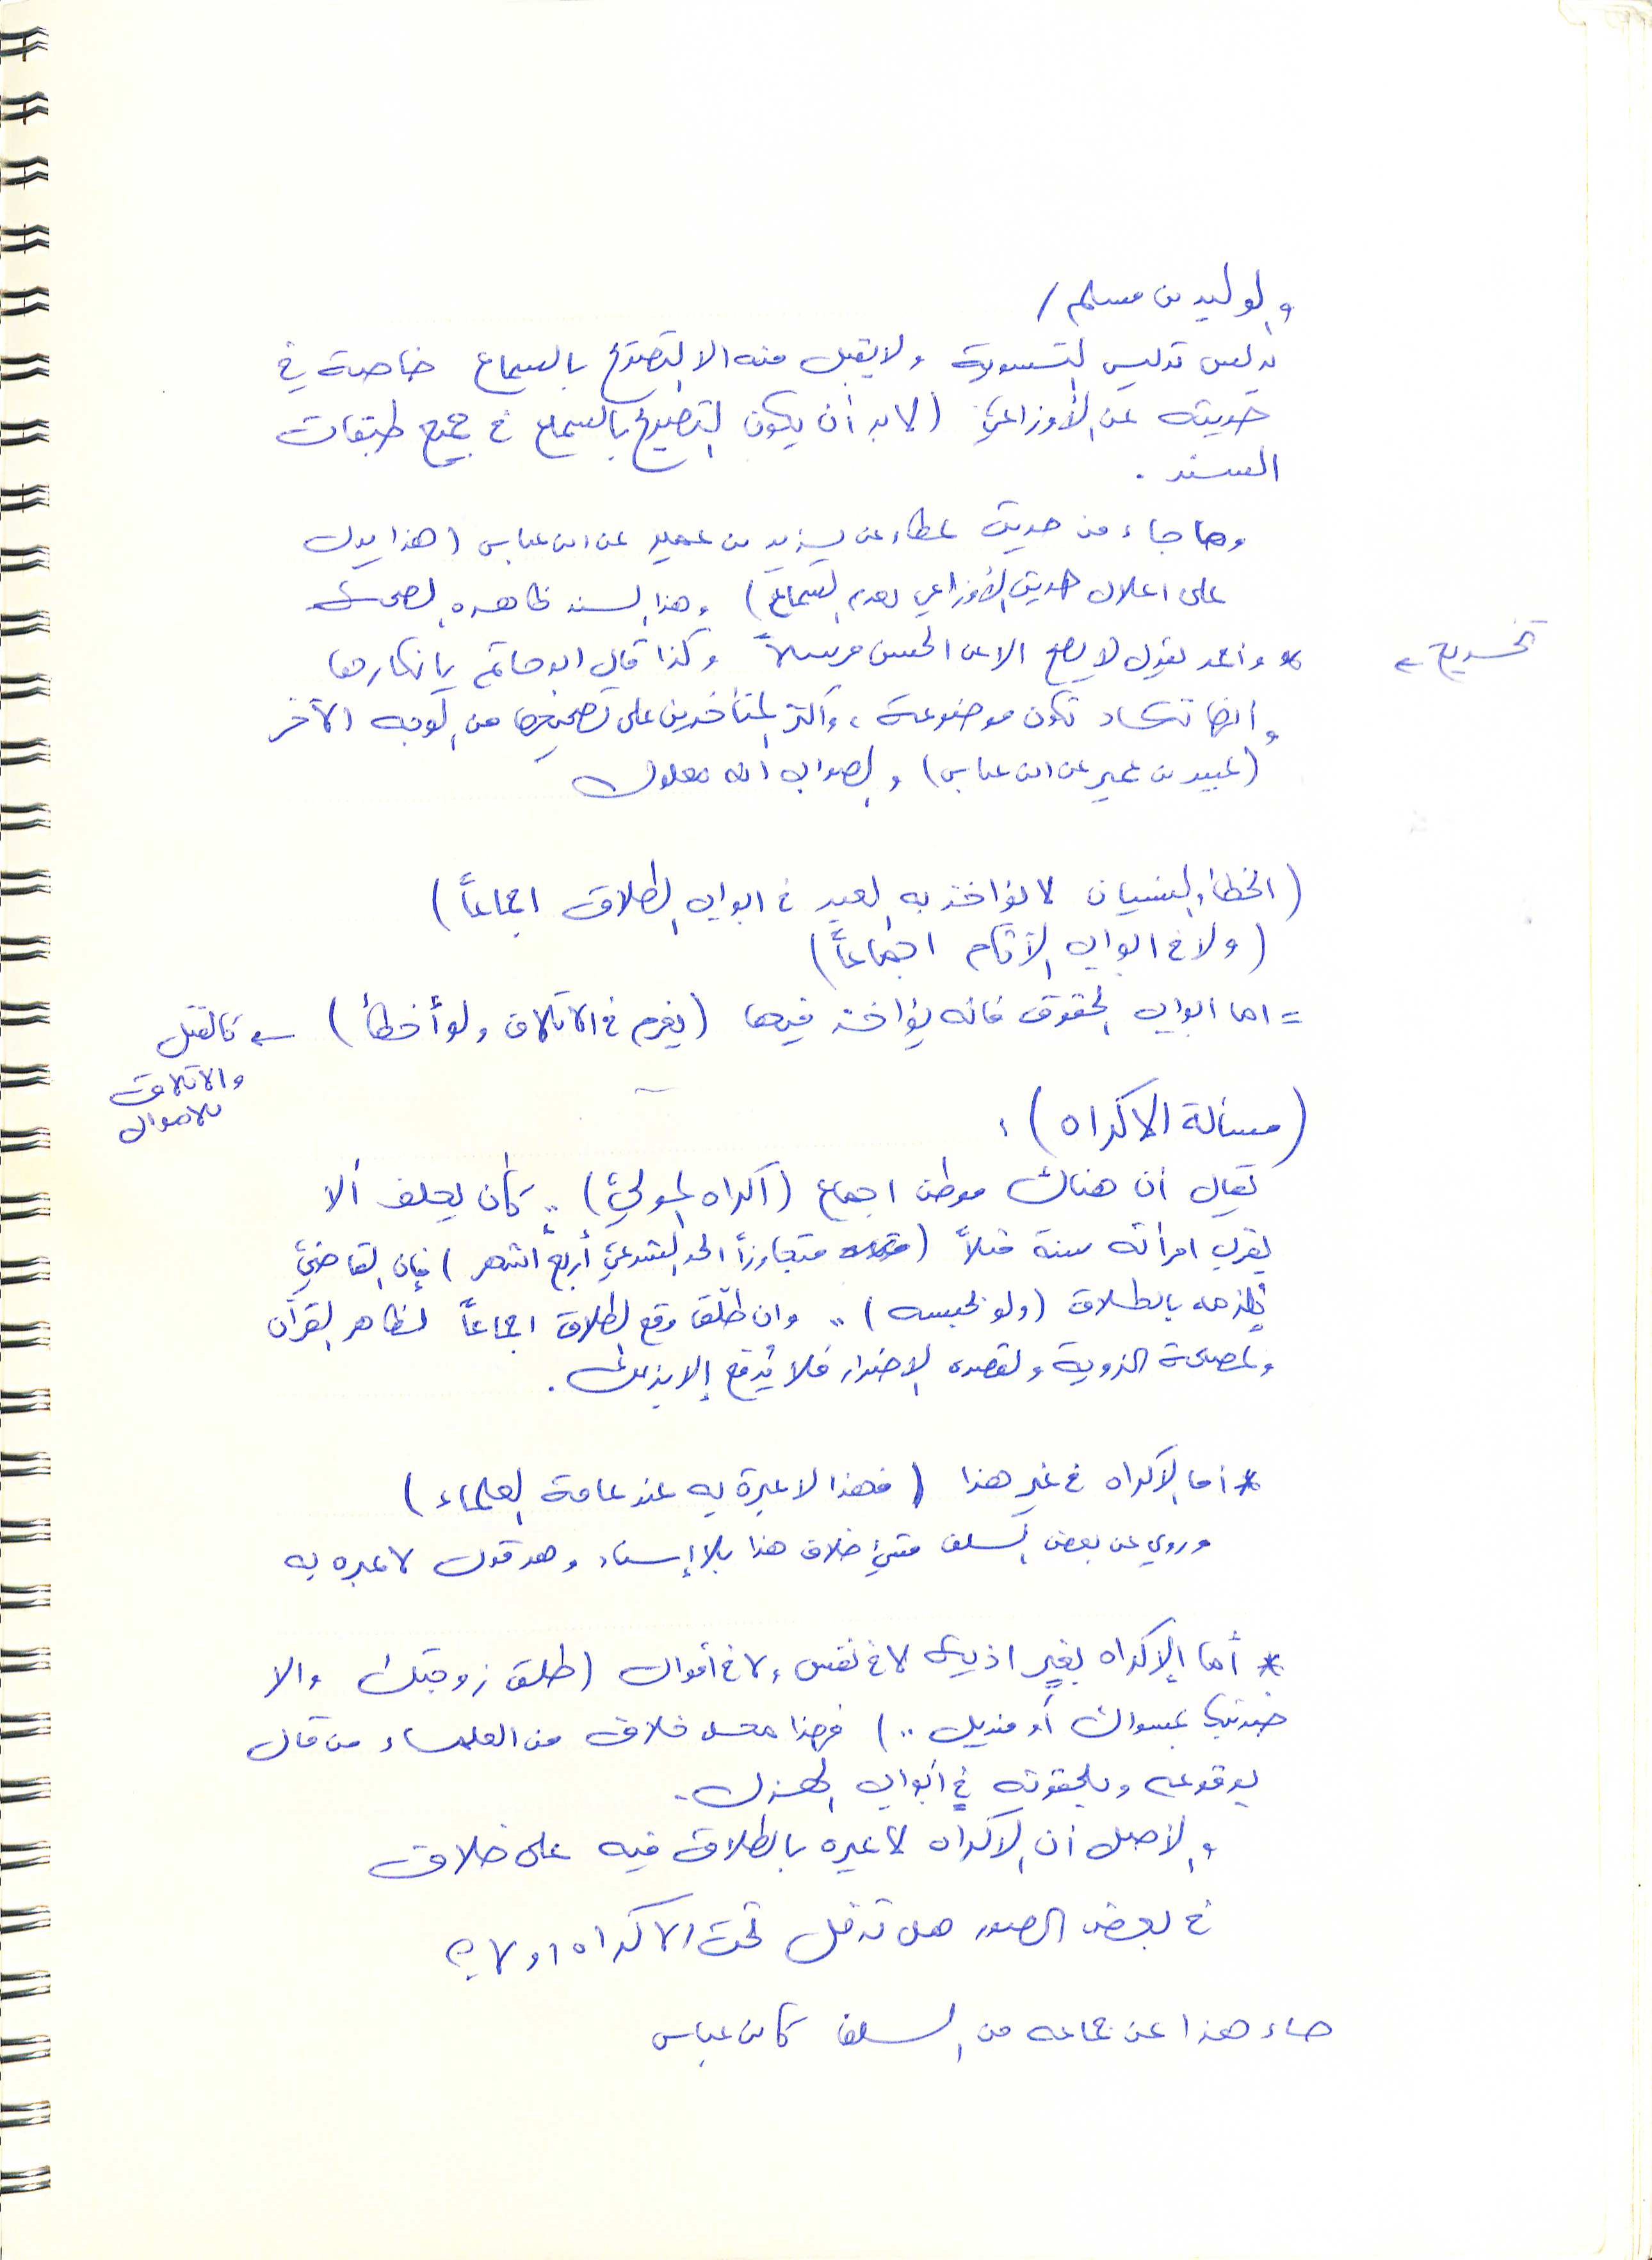 والوليد بن مسلم /
يدلس تدليس التسوية ولا يقبل منه الا التصريح بالسماع خاصة في
حديثه عن الأوزاعي (لا بد أن يكون التصريح بالسماع في جميع طبقات
السند .
وما جاء من حديث عطاء عن عبيد بن عمير عن ابن عباس (هذا يدل
على اعلال حديث الأوزاعي بعدم السماع) وهذا السند ظاهره الصحة
تخريج ←
* واحمد يقول لا يصح الا عن الحسن مرسلاً وكذا قال ابو حاتم بإنكارها
وانها تكاد تكون موضوعة، واكثر المتأخرين على تصحيحها من الوجه الآخر
(عبيد بن عمير عن ابن عباس) والصواب انه معلول
(الخطأ والنسيان لا يؤاخذ به العبد في ابواب الطلاق اجماعاً)
(ولا في ابواب الآثام اجماعاً)
= اما ابواب الحقوق فانه يؤاخذ فيها (يغرم في الاتلاف ولو أخطأ) ← كالقتل
والاتلاف
للاموال
(مسألة الاكراه) :
يقال ان هناك موطن اجماع (اكراه المولي) .. كأن يحلف ألا
يقرب امرأته سنة مثلاً (متجاوزاً الحد الشرعي أربعة أشهر) فإن القاضي
يلزمه بالطلاق (ولو بحبسه) .. وان طلّق وقع الطلاق اجماعاً لظاهر القرآن
ولمصلحة الزوجة ولقصده الإضرار فلا يُدفع إلا بذلك .
* أما الإكراه في غير هذا (فهذا لا عبرة به عند عامة العلماء)
وروي عن بعض السلف خلاف هذا بلا إسناد وهو قول لا عبره به
* أما الإكراه بغير اذية لا في نفس ولا في أموال (طلق زوجتك والا
ضربتك بمسواك أو منديل ..) فهذا محل خلاف من العلماء من قال
بوقوعه ويلحقونه في أبواب الهزل .
والأصل أن الاكراه لا عبره بالطلاق فيه على خلاف
في بعض الصور هل تدخل تحت الاكراه او لا ؟
جاء هذا عن جماعه من السلف كابن عباس